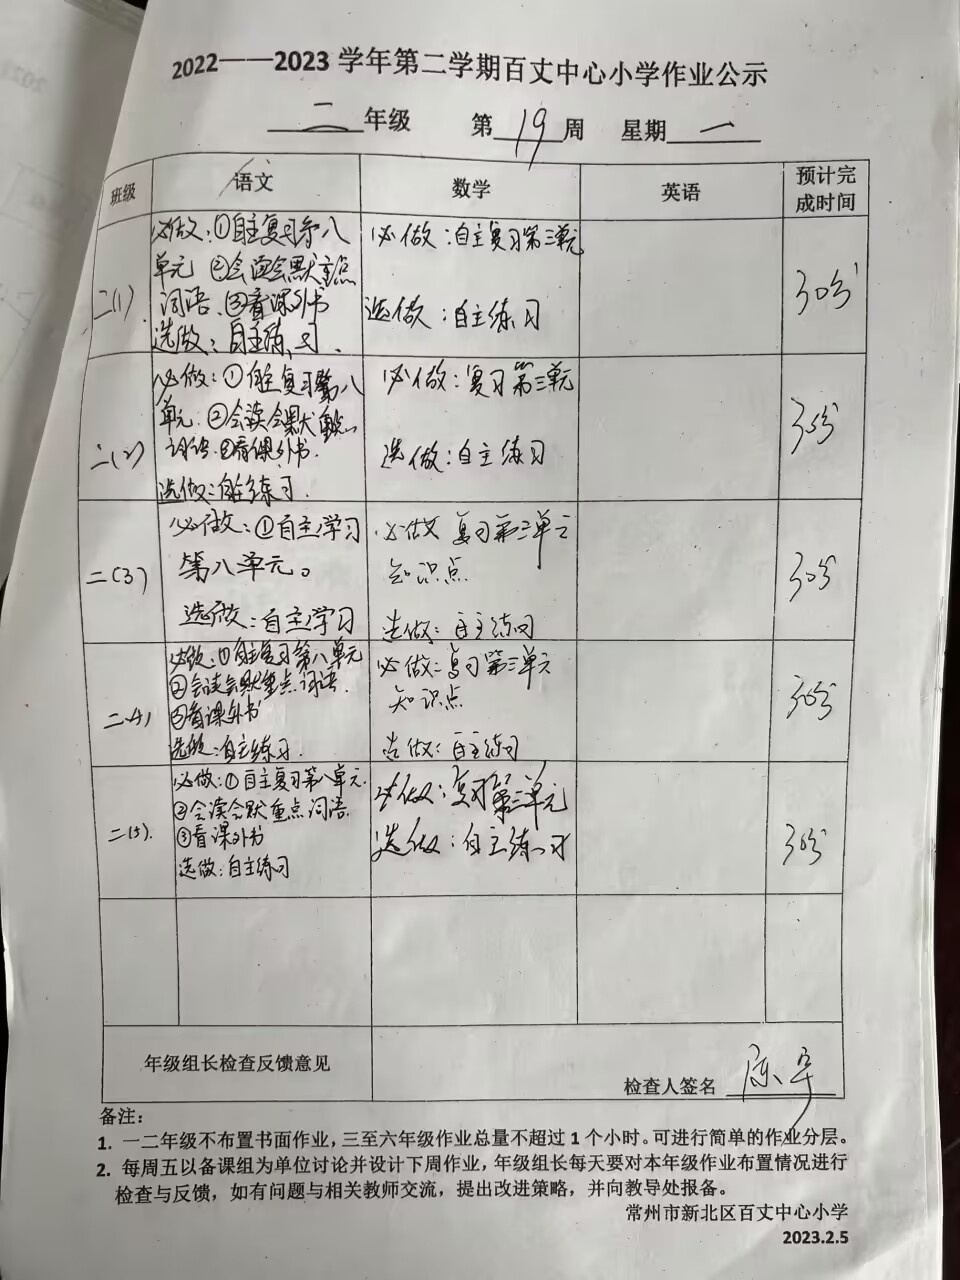 2022——2023 学年第二学期百丈中心小学作业公示
二 年级 第 19 周 星期 一
班级 语文 数学 英语 预计完成时间
二(1)
必做:①自主复习第八
单元 ②会读会默重点
词语.③看课外书
选做:自主练习.
必做:自主复习第三单元
选做:自主练习
30分
二(2)
必做:①自主复习第八
单元.②会读会默重点
词语.③看课外书.
选做:自主练习.
必做:复习第三单元
选做:自主练习
30分
二(3)
必做:①自主学习
第八单元。
选做:自主学习
必做 复习第三单元
知识点
选做:自主练习
30分
二(4)
必做:①自主复习第八单元
②会读会默重点词语.
③看课外书
选做:自主练习.
必做:复习第三单元
知识点
选做:自主练习
30分
二(5).
必做:①自主复习第八单元.
②会读会默重点词语.
③看课外书
选做:自主练习
必做:复习第三单元
选做:自主练习
30分
年级组长检查反馈意见
检查人签名
备注:
1. 一二年级不布置书面作业,三至六年级作业总量不超过 1 个小时。可进行简单的作业分层。
2. 每周五以备课组为单位讨论并设计下周作业,年级组长每天要对本年级作业布置情况进行
检查与反馈,如有问题与相关教师交流,提出改进策略,并向教导处报备。
常州市新北区百丈中心小学
2023.2.5